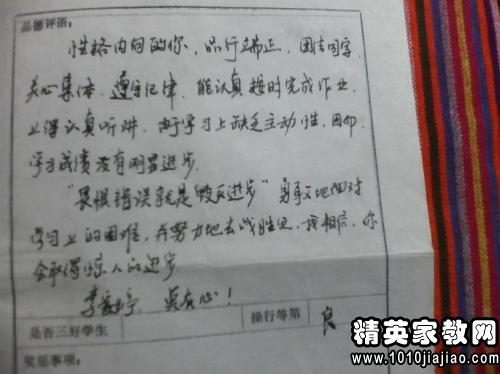 品德评语:
性格内向的你,品行端正,团结同学,
关心集体,遵守纪律,能认真按时完成作业,
上课认真听讲,由于学习上缺乏主动性,因而
学习成绩没有明显进步.
“畏惧错误就是毁灭进步”勇敢地面对
学习上的困难,并努力地去战胜它,我相信,你
会取得惊人的进步
李 婷, 莫灰心!
是否三好学生
操行等第
良
奖惩事项:
精英家教网
www.1010jiajiao.com